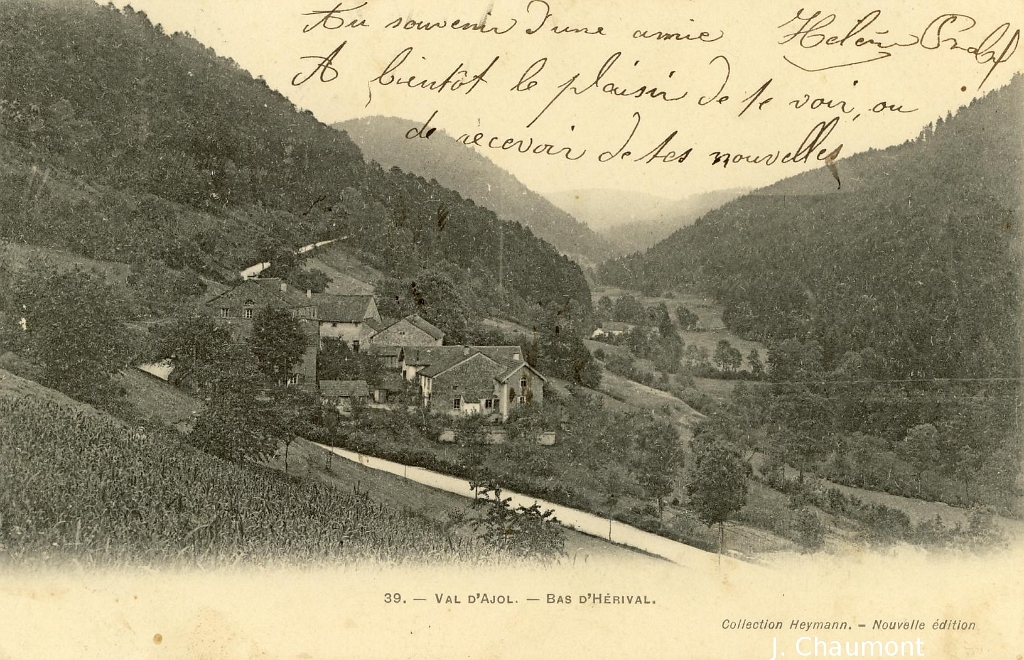 Au souvenir d'une amie Helène
A bientôt le plaisir de te voir, ou
de recevoir de tes nouvelles
39. — VAL D'AJOL. — BAS D'HÉRIVAL.
Collection Heymann. – Nouvelle édition
J. Chaumont